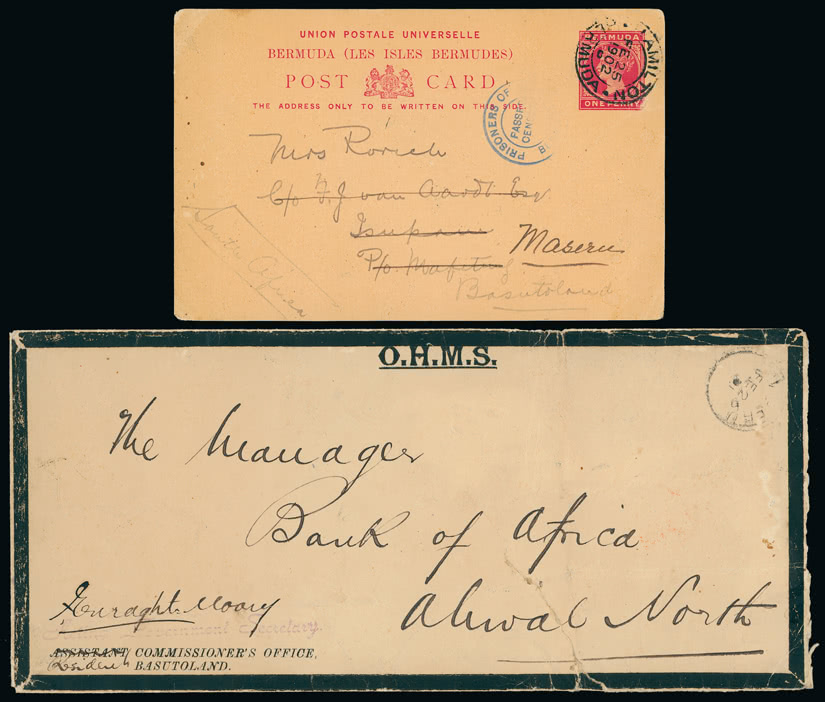 UNION POSTALE UNIVERSELLE
BERMUDA (LES ISLES BERMUDES)
POST CARD
THE ADDRESS ONLY TO BE WRITTEN ON THIS SIDE.
BERMUDA
ONE PENNY
HAMILTON BERMUDA
FE 25
1902
PRISONERS OF
PASS
CEN
Mrs Rorich
C/o F. J van Aardt Esq
P/o Mafeting
Maseru
Basutoland
South Africa
O.H.M.S.
FE 26
The Manager
Bank of Africa
Aliwal North
Enraght-Moony
Government Secretary.
ASSISTANT COMMISSIONER'S OFFICE,
Resident
BASUTOLAND.